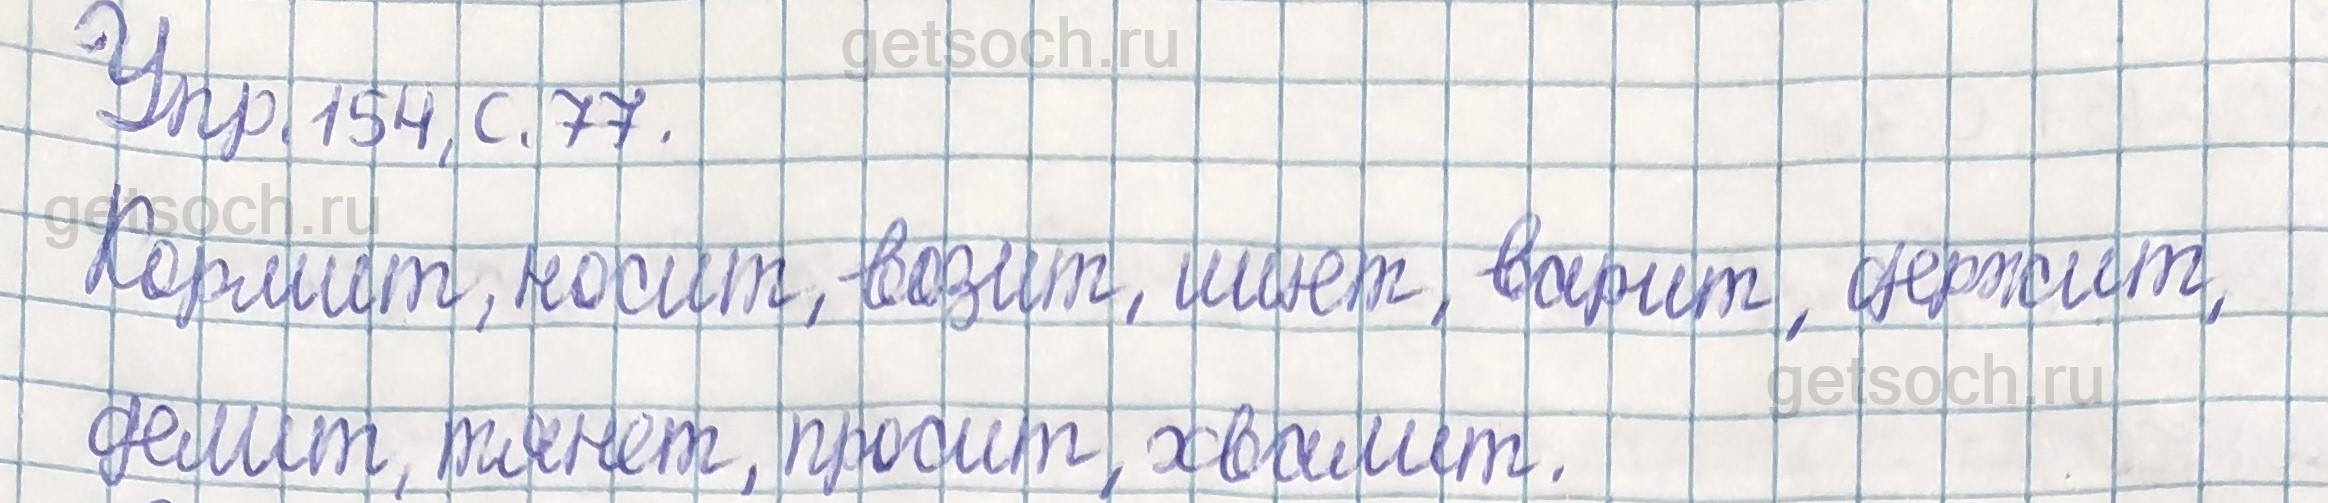 getsoch.ru
Упр. 154, с. 77.
getsoch.ru
Кормит, носит, возит, шьет, варит, держит,
getsoch.ru
делит, тянет, просит, хвалит.